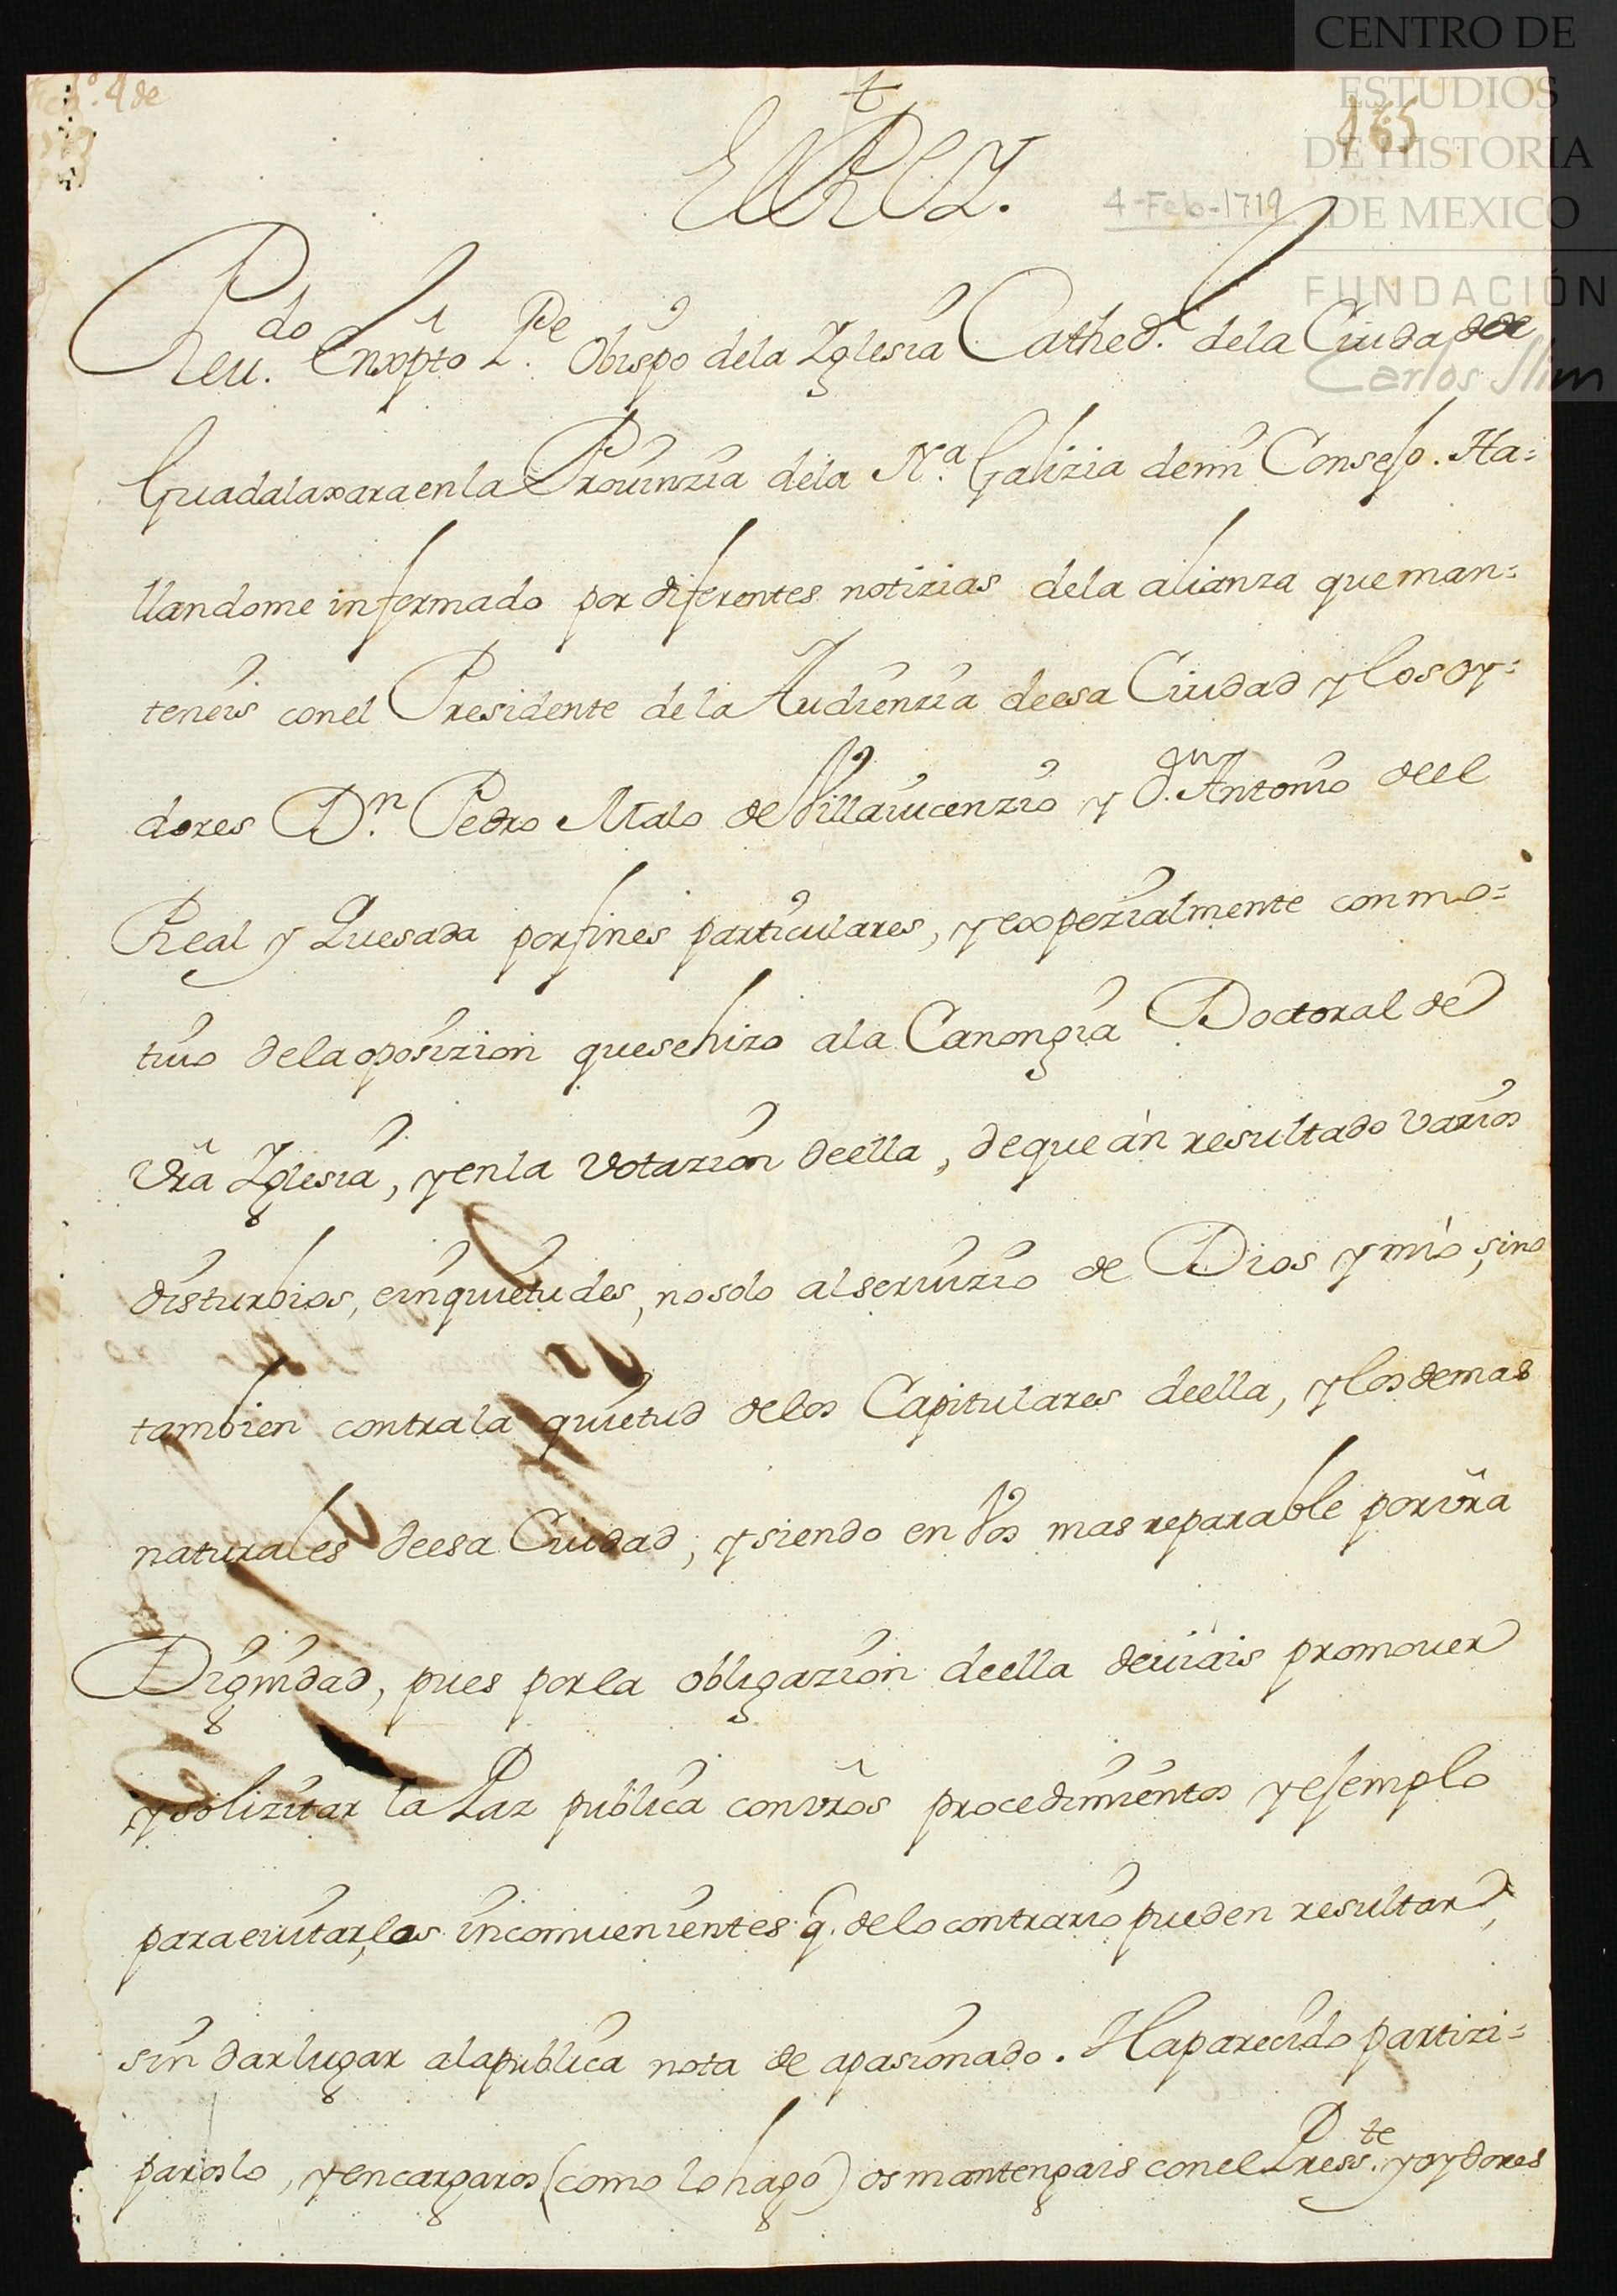 CENTRO DE
ESTUDIOS
DE HISTORIA
DE MEXICO
FUNDACIÓN
Carlos Slim
4 de
165
†
El Rey.
4-Feb-1719
Reu.do enxpto P.e Obispo dela Yglesia Cathed.l dela Ciudad de
Guadalaxara en la Prouinzia dela N.a Galizia demi Consejo. Ha=
llandome informado por diferentes notizias dela alianza que man=
teneis conel Presidente dela Audienzia deesa Ciudad y los oy=
dores D.n Pedro Malo de Villauicenzio y d.n Antonio deel
Real y Quesada por fines particulares, y expezialmente con mo=
tiuo dela oposizion quesehizo ala Canongia Doctoral de
vra Yglesia, y en la votazion deella, de que án resultado varios
disturbios, einquietudes, no solo al seruizio de Dios y mio, sino
tambien contra la quietud delos Capitulares deella, y los demas
naturales deesa Ciudad; y siendo en Vos mas reparable por vra
Dignidad, pues por la obligazion deella deuiais promouer
y solizitar la Paz publica con vros procedimientos y ejemplo
para euitar, los inconuenientes q. de lo contrario pueden resultar,
sin dar lugar ala publica nota de apasionado. Ha parecido partizi=
paroslo, y encargaros (como lo hago) os mantengais conel Press.te y oydores